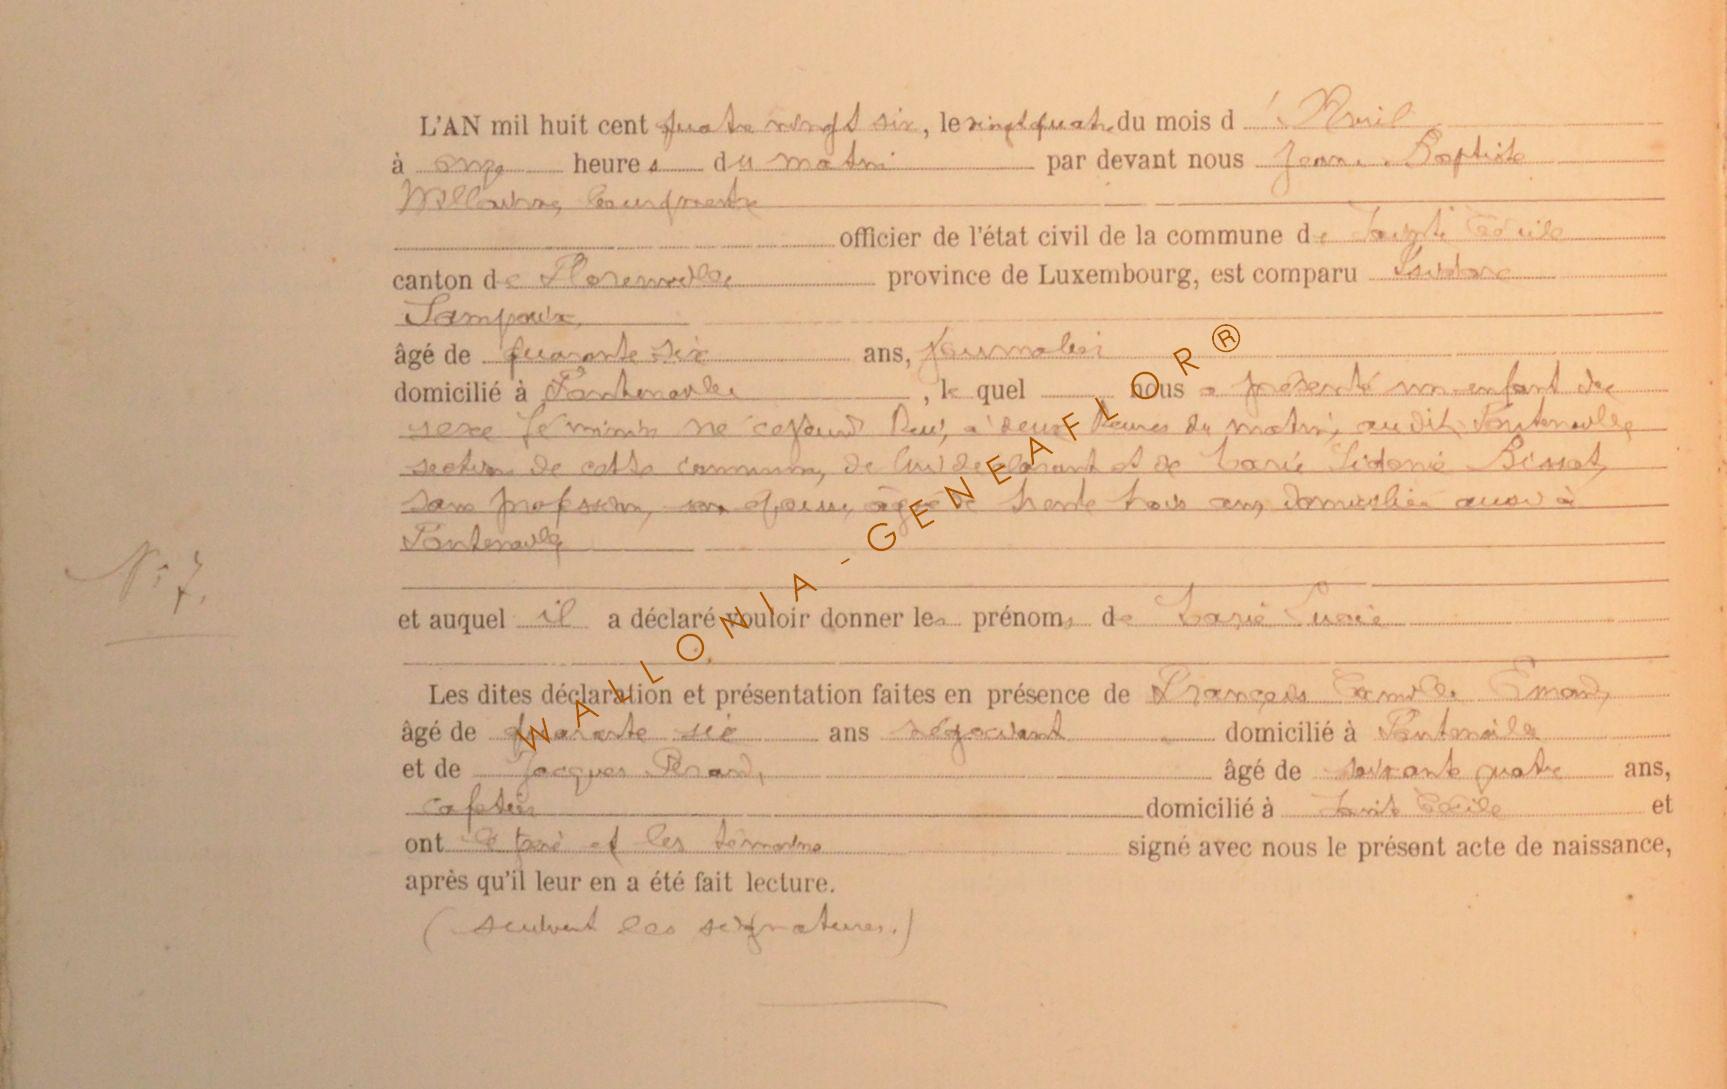 L'AN mil huit cent quatre vingt six, le vingt quatre du mois d'Avril
à onze heures du matin par devant nous Jean-Baptiste
bourgmestre
officier de l'état civil de la commune de Sainte Cécile
canton de Florenville province de Luxembourg, est comparu Isidore
Lampoix
âgé de quarante six ans, journalier
domicilié à Fontenoille, lequel nous a présenté un enfant de
sexe féminin né cejourd'hui, à deux heures du matin, audit Fontenoille
section de cette commune, de lui déclarant et de Marie Sidonie
sans profession, son épouse, âgée de trente trois ans, domiciliée aussi à
Fontenoille
N° 7.
et auquel il a déclaré vouloir donner les prénoms de Marie Lucie
Les dites déclaration et présentation faites en présence de François Camille
âgé de quarante six ans négociant domicilié à Fontenoille
et de Jacques Pérard, âgé de soixante quatre ans,
cafetier domicilié à Sainte Cécile et
ont le père et les témoins signé avec nous le présent acte de naissance,
après qu'il leur en a été fait lecture.
(suivent les signatures.)
WALLONIA - GENEAFLOR®